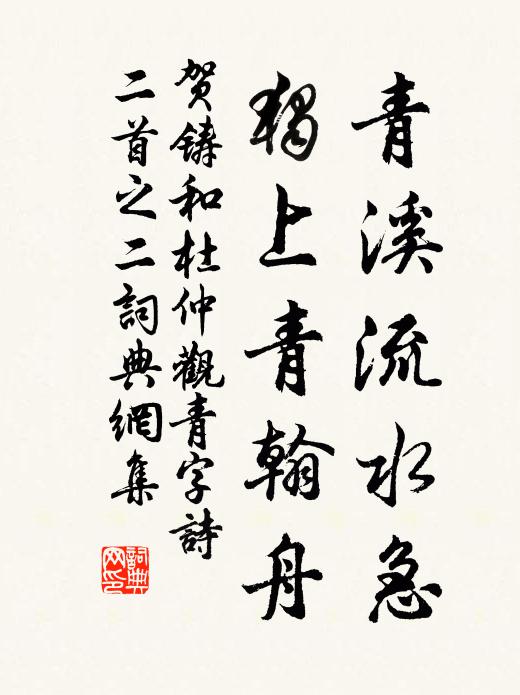 青溪流水急
獨上青翰舟
贺鑄和杜仲觀青字詩
二首之二詞典網集
詞典網印